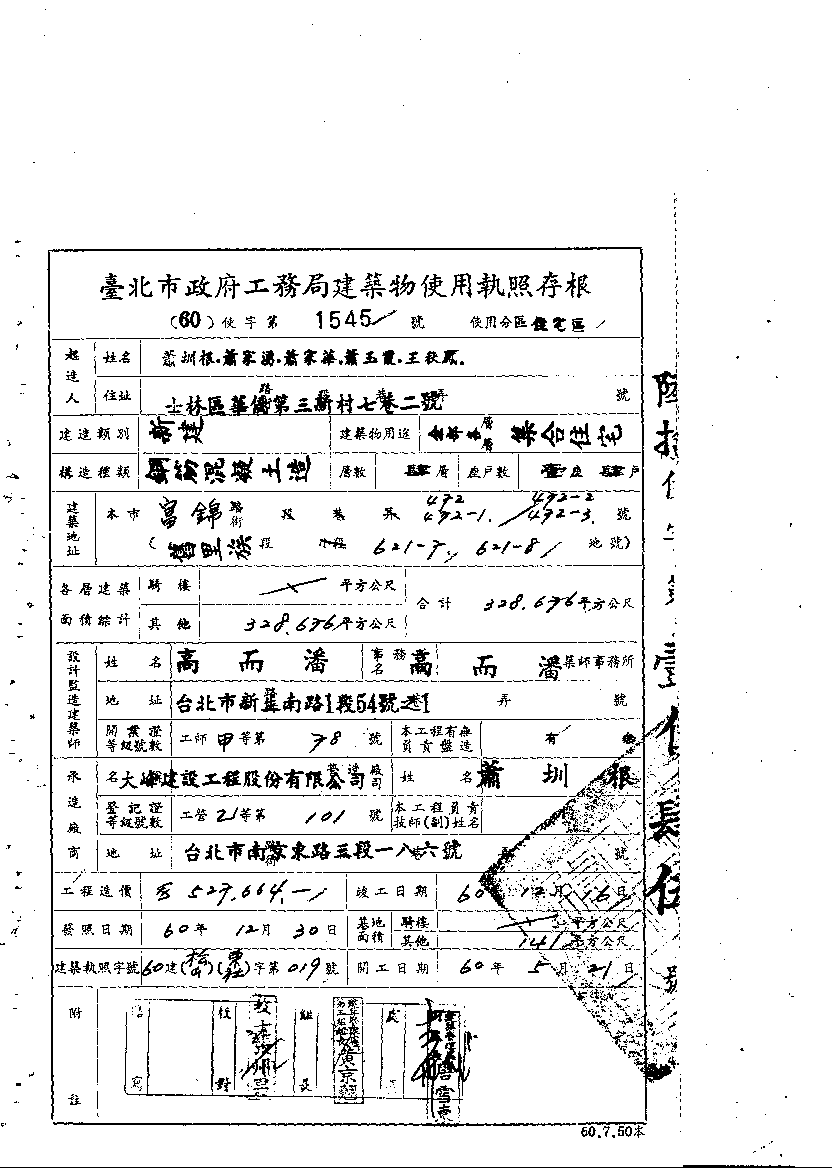 臺北市政府工務局建築物使用執照存根
(60)使字第 1545 號 使用分區 住宅區
起造人 姓名 蕭圳根.蕭家湧.蕭家華.蕭玉霞.王秋鳳.
住址 士林區華僑第三新村七巷二號 號
建造類別 新建 建築物用途 層 層 集合住宅
構造種類 鋼筋混凝土造 層數 肆層 座戶數 壹座 肆戶
建築地址 本市 富錦 路街 段 巷 弄 472 472-1. 472-2 472-3. 號
(舊里族段 小段 621-7, 621-8 地號)
各層建築面積綜計 騎樓 平方公尺 合計 328.676平方公尺
其他 328.676平方公尺
設計監造建築師 姓名 高而潘 事務名 高而潘 築師事務所
地址 台北市新生南路1段54號巷1 弄 號
開業證等級號數 工師 甲等第 78 號 本工程有無員責監造 有
承造廠商 名 建設工程股份有限公司 姓名 蕭圳根
登記證等級號數 工管 21等第 101 號 本工程員責技師(副)姓名
地址 台北市南京東路五段一八六號 號
工程造價 527,664.- 竣工日期 60年12月16日
發照日期 60年 12月 30日 基地面積 騎樓 平方公尺
其他 141平方公尺
建築執照字號 60建(松山)( )字第019號 開工日期 60年 5月 21日
附註 校對 組長 處
60.7.50本